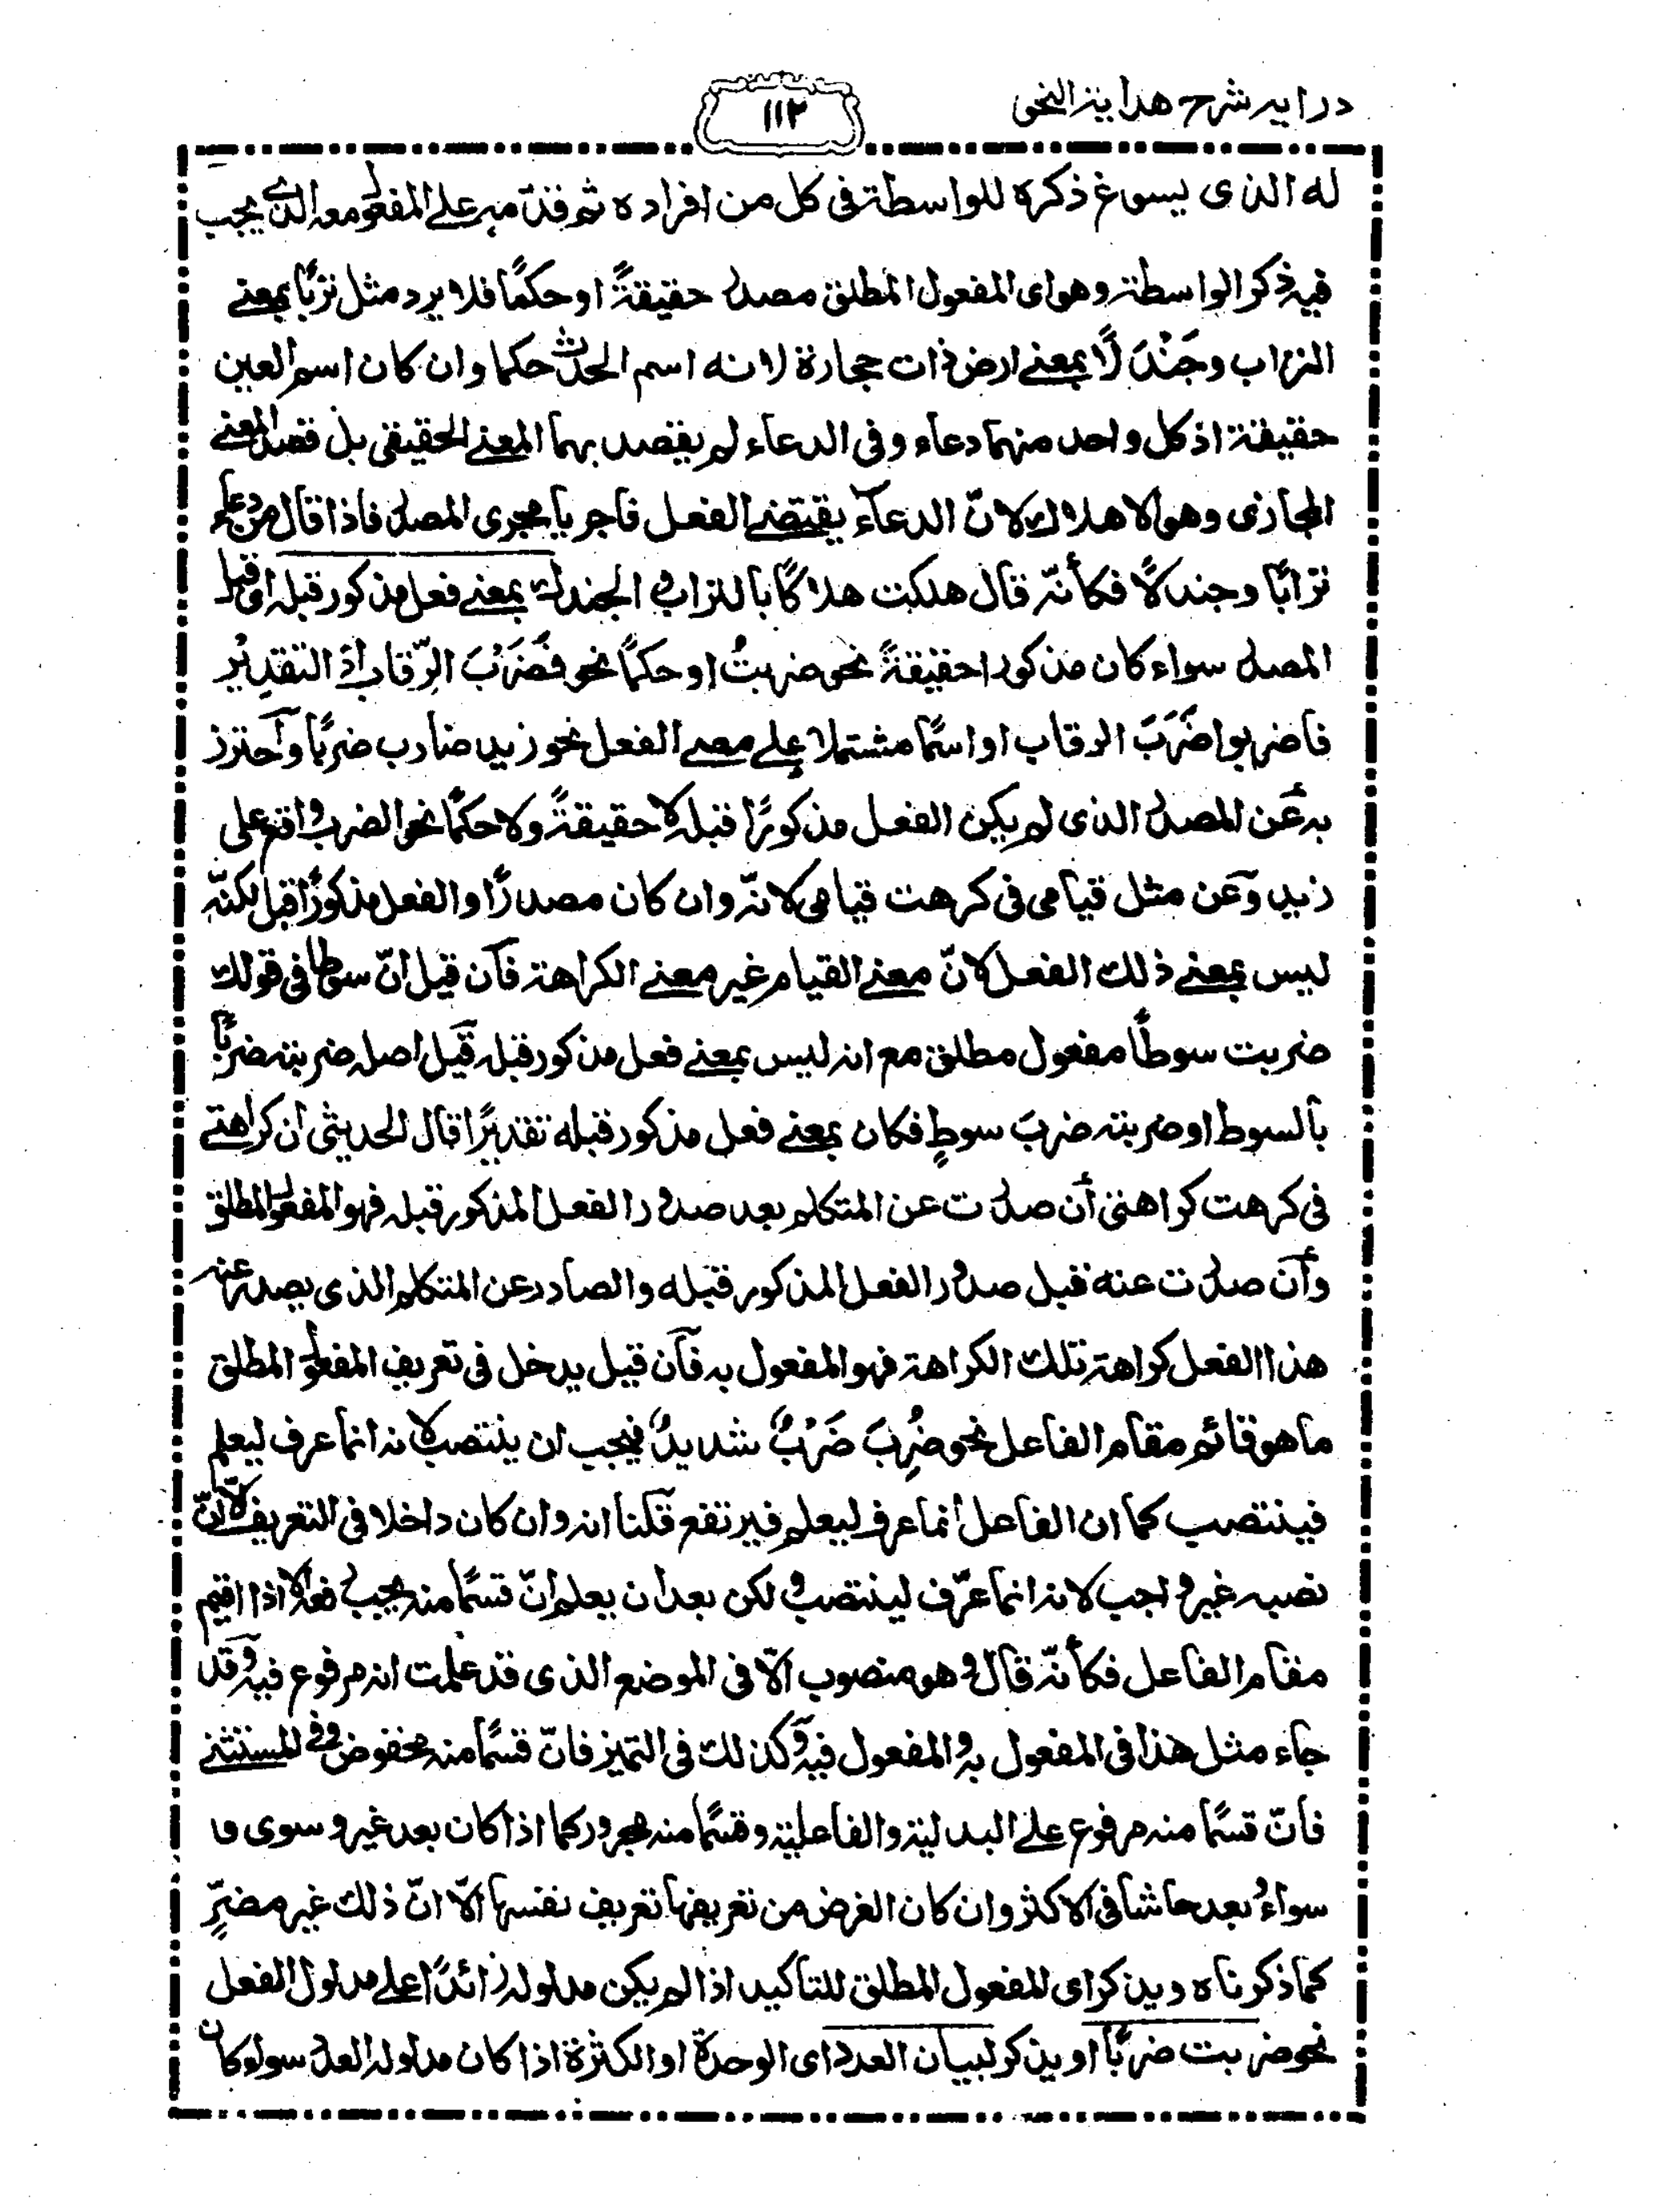 درايه شرح هداية النحو
١١٢
له الذى يسوغ ذكره للواسطة فى كل من افراده ثم قدّمه على المفعول معه الذى يجب
فيه ذكر الواسطة وهو اى المفعول المطلق مصدر حقيقةً او حكمًا فلا يرد مثل تربًا بمعنى
التراب وجَنْدَلًا بمعنى ارض ذات حجارة لانه اسم الحدث حكما وان كان اسم العين
حقيقة اذ كل واحد منهما دعاء وفى الدعاء لم يقصد بهما المعنى الحقيقى بل قصد المعنى
المجازى وهو الاهلاك لانّ الدعاء يقتضى الفعل فاجريا مجرى المصدر فاذا قال من دعاء
ترابًا وجندلًا فكأنّه قال هلكت هلاكًا بالتراب و الجندل بمعنى فعل مذكور قبله اى قبل
المصدر سواء كان مذكورا حقيقةً نحو ضربتُ او حكمًا نحو فَضَرْبَ الرِّقاب اذ التقدير
فاضربوا ضَرْبَ الرقاب او اسمًا مشتملا على معنى الفعل نحو زيد ضارب ضربًا واحترز
به عن المصدر الذى لم يكن الفعل مذكورًا قبله لا حقيقةً ولا حكمًا نحو الضرب واقع على
زيد وعن مثل قيامى فى كرهت قيامى لانّه وان كان مصدرًا والفعل مذكورًا قبل لكنّه
ليس بمعنى ذلك الفعل لانّ معنى القيام غير معنى الكراهة فان قيل انّ سوطا فى قولك
ضربت سوطًا مفعول مطلق مع انه ليس بمعنى فعل مذكور قبله قيل اصله ضربته ضربًا
بالسوط او ضربته ضربَ سوطٍ فكان بمعنى فعل مذكور قبله تقديرًا قال الحديثى ان كراهتى
فى كرهت كراهتى أن صدرت عن المتكلم بعد صدور الفعل المذكور قبله فهو المفعول المطلق
وأن صدرت عنه قبل صدور الفعل المذكور قبله والصادر عن المتكلم الذى يصدر عنه
هذا الفعل كراهة تلك الكراهة فهو المفعول به فان قيل يدخل فى تعريف المفعول المطلق
ما هو قائم مقام الفاعل نحو ضُرِبَ ضَرْبٌ شديدٌ فيجب ان ينتصب لانه انما عرف ليعلم
فينتصب كما ان الفاعل انما عرف ليعلم فيرتفع قلنا انه وان كان داخلا فى التعريف الّا انّ
نصبه غير واجب لانه انما عرّف لينتصب و لكن بعد ان يعلم انّ قسمًا منه يجب رفعه اذا اقيم
مقام الفاعل فكأنّه قال و هو منصوب الّا فى الموضع الذى قد علمت انه مرفوع فيه وقد
جاء مثل هذا فى المفعول به و المفعول فيه وكذلك فى التميز فانّ قسمًا منه مخفوض وفى المستثنى
فانّ قسمًا منه مرفوع على البدلية والفاعلية وقسمًا منه مجرور كما اذا كان بعد غير و سوى و
سواءُ بعد حاشا فى الاكثر وان كان الغرض من تعريفها تعريف نفسها الّا انّ ذلك غير مضرٍّ
كما ذكرناه ويذكر اى المفعول المطلق للتاكيد اذا لم يكن مدلوله زائدًا على مدلول الفعل
نحو ضربت ضربًا او يذكر لبيان العدد اى الوحدة او الكثرة اذا كان مدلوله العدد سواء كان